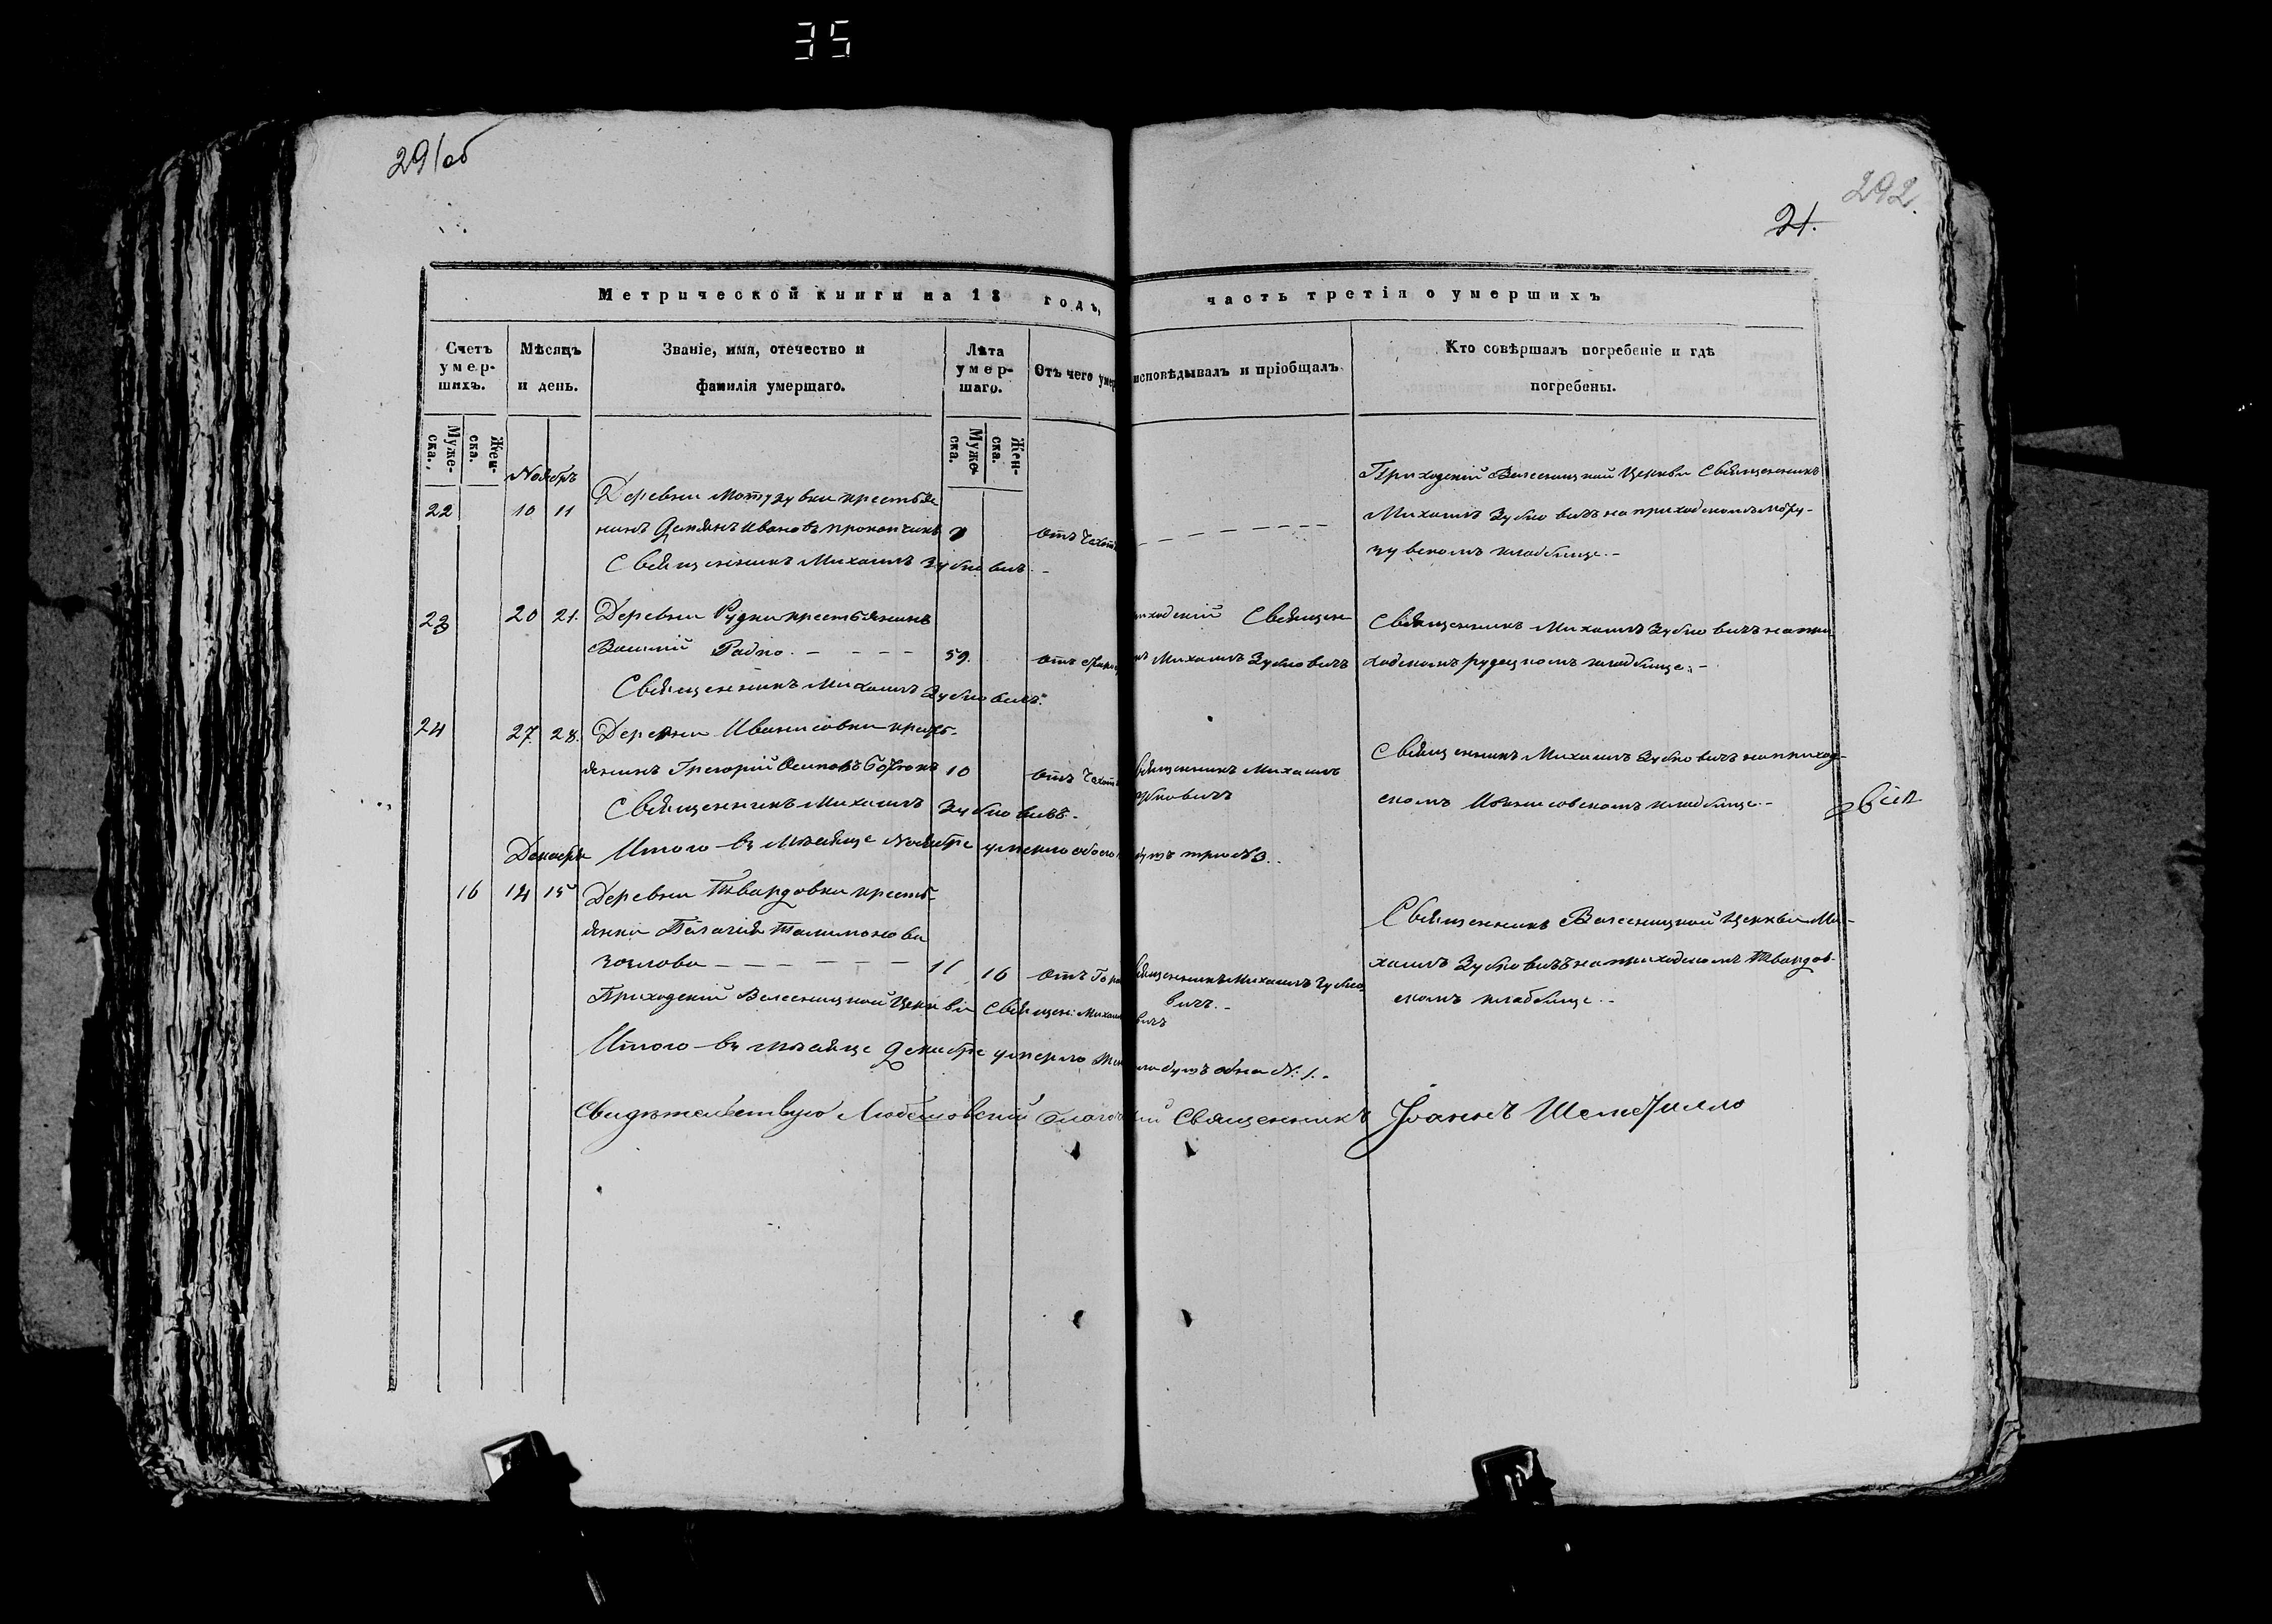 35
291об
292.
21.
Метрической книги на 18 годъ,
часть третія о умершихъ
Счетъ умер- шихъ.
Мѣсяцъ и день.
Званіе, имя, отечество и фамилія умершаго.
Лѣта умер- шаго.
Отъ чего умер
исповѣдывалъ и пріобщалъ
Кто совѣршалъ погребеніе и гдѣ погребены.
Муже- ска.
Жен- ска.
Муже- ска.
Жен- ска.
Ноябрь
22 10 11 Деревни Мотузувки крестья
нинъ Демянъ Ивановъ Прокопчикъ
отъ чахот
Священникъ Михаилъ Зубковичъ.-
Приходскій Велесницкой Церкви Священникъ
Михаилъ Зубковичъ на приходскомъ Моту-
зувскомъ кладбище.-
23 20 21. Деревни Рудки крестьянинъ
Василій Радко. - - - - 59.
Священникъ Михаилъ Зубковичъ.
иходскій Священ
ъ Михаилъ Зубковичъ
Священникъ Михаилъ Зубковичъ на при
ходскомъ рудецкомъ кладбище.-
24 27. 28. Деревни Иванисовки кресть-
янинъ Григорій Осиповъ 10 отъ чахот
Священникъ Михаилъ Зубковичъ.-
вященникъ Михаилъ
убковичъ
Священникъ Михаилъ Зубковичъ на приход-
скомъ Иванисовскомъ кладбище.-
Декабрь Итого въ мѣсяце Ноябре умерло обоего
душъ три № 3..
16 14 15 Деревни Твардовки кресть-
янка Пелагія
козлова - - - - - 16 отъ
Приходскій Велесницкой Церкви Священ: Михаи
вященникъ Михаилъ Зубко
вичъ.-
вичъ
Священникъ Велесницкой Церкви Ми-
хаилъ Зубковичъ на приходскомъ Твардов-
скомъ кладбище.-
Итого въ мѣсяце Декабре умерло жен
душъ одна №: 1.-
Свидѣтельствую Любешовскій Благоч
ій Священникъ Іоаннъ